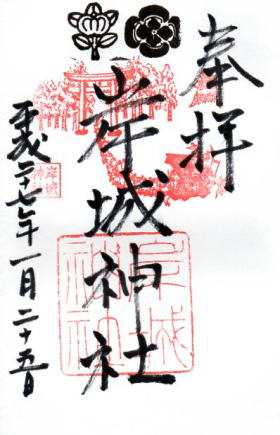 奉拝
岸城神社
平成二十七年一月二十五日
岸城
神社
岸城
神社